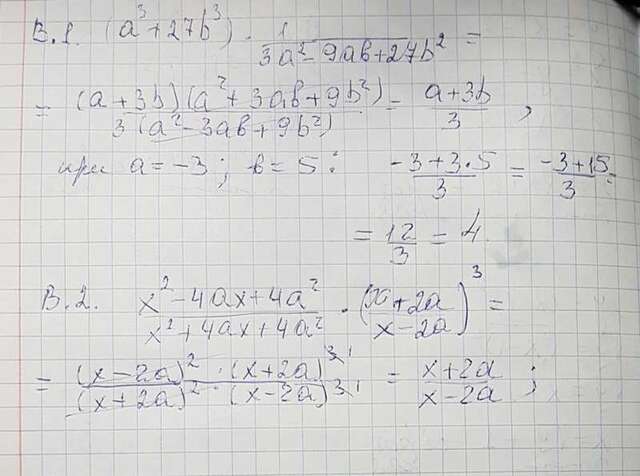 В.1. (a³+27b³) · 1/(3a²-9ab+27b²) =
= (a+3b)(a²+3ab+9b²)/(3(a²-3ab+9b²)) = (a+3b)/3 ,
при a=-3; b=5: (-3+3·5)/3 = (-3+15)/3 =
= 12/3 = 4
В.2. (x²-4ax+4a²)/(x²+4ax+4a²) · ((x+2a)/(x-2a))³ =
= ((x-2a)² · (x+2a)³ ¹)/((x+2a)² · (x-2a)³ ¹) = (x+2a)/(x-2a) ;